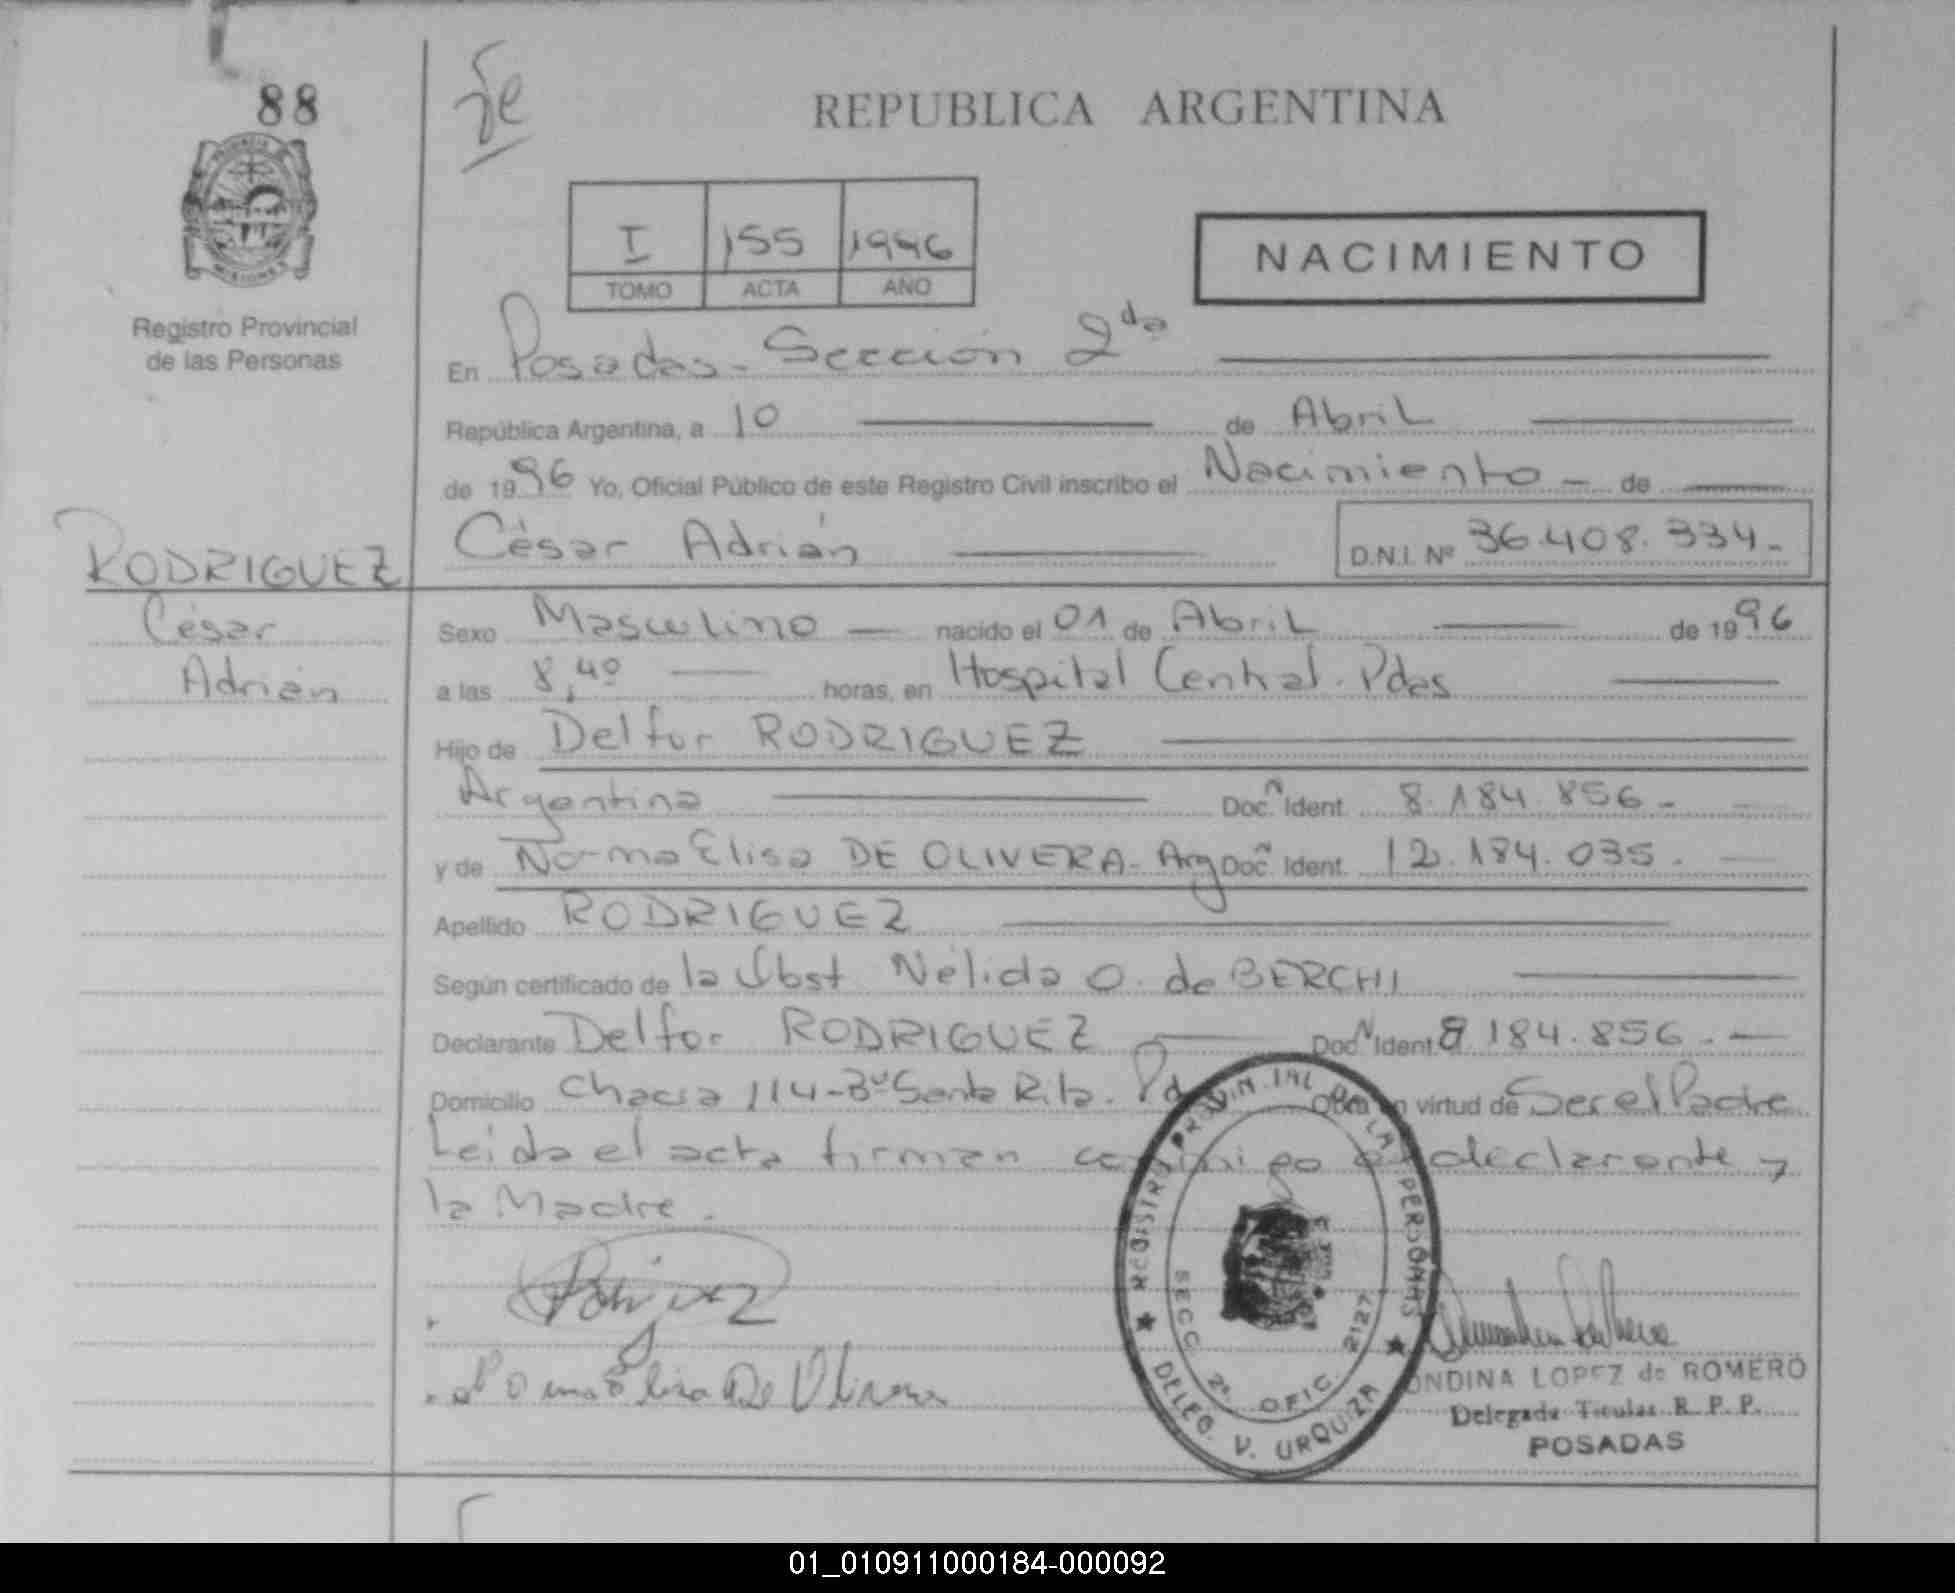 88
fe
REPUBLICA ARGENTINA
PROVINCIA DE MISIONES
Registro Provincial
de las Personas
I 155 1996
TOMO ACTA AÑO
NACIMIENTO
En Posadas - Sección 2da
República Argentina, a 10 de Abril
de 1996 Yo, Oficial Público de este Registro Civil inscribo el Nacimiento - de
César Adrián D.N.I. Nº 36.408.334.-
RODRIGUEZ
César
Adrián
Sexo Masculino nacido el 01 de Abril de 1996
a las 8,40 horas, en Hospital Central. Pdas
Hijo de Delfor RODRIGUEZ
Argentina Doc. Ident. 8.184.856.-
y de Norma Elisa DE OLIVERA - Arg Doc. Ident. 12.184.035.
Apellido RODRIGUEZ
Según certificado de la Obst Nélida O. de BERCHI
Declarante Delfor RODRIGUEZ Doc. Ident. 8.184.856.-
Domicilio Chacra 114-Bº Santa Rita. Obra en virtud de Ser el Padre
Leida el acta firman conmigo el declarante y
la Madre.
Norma Elisa De Olivera
REGISTRO PROVINCIAL DE LAS PERSONAS
SECC. 2ª OFIC. 2127
DELEG. V. URQUIZA
ONDINA LOPEZ de ROMERO
Delegada Titular R. P. P.
POSADAS
01_010911000184-000092